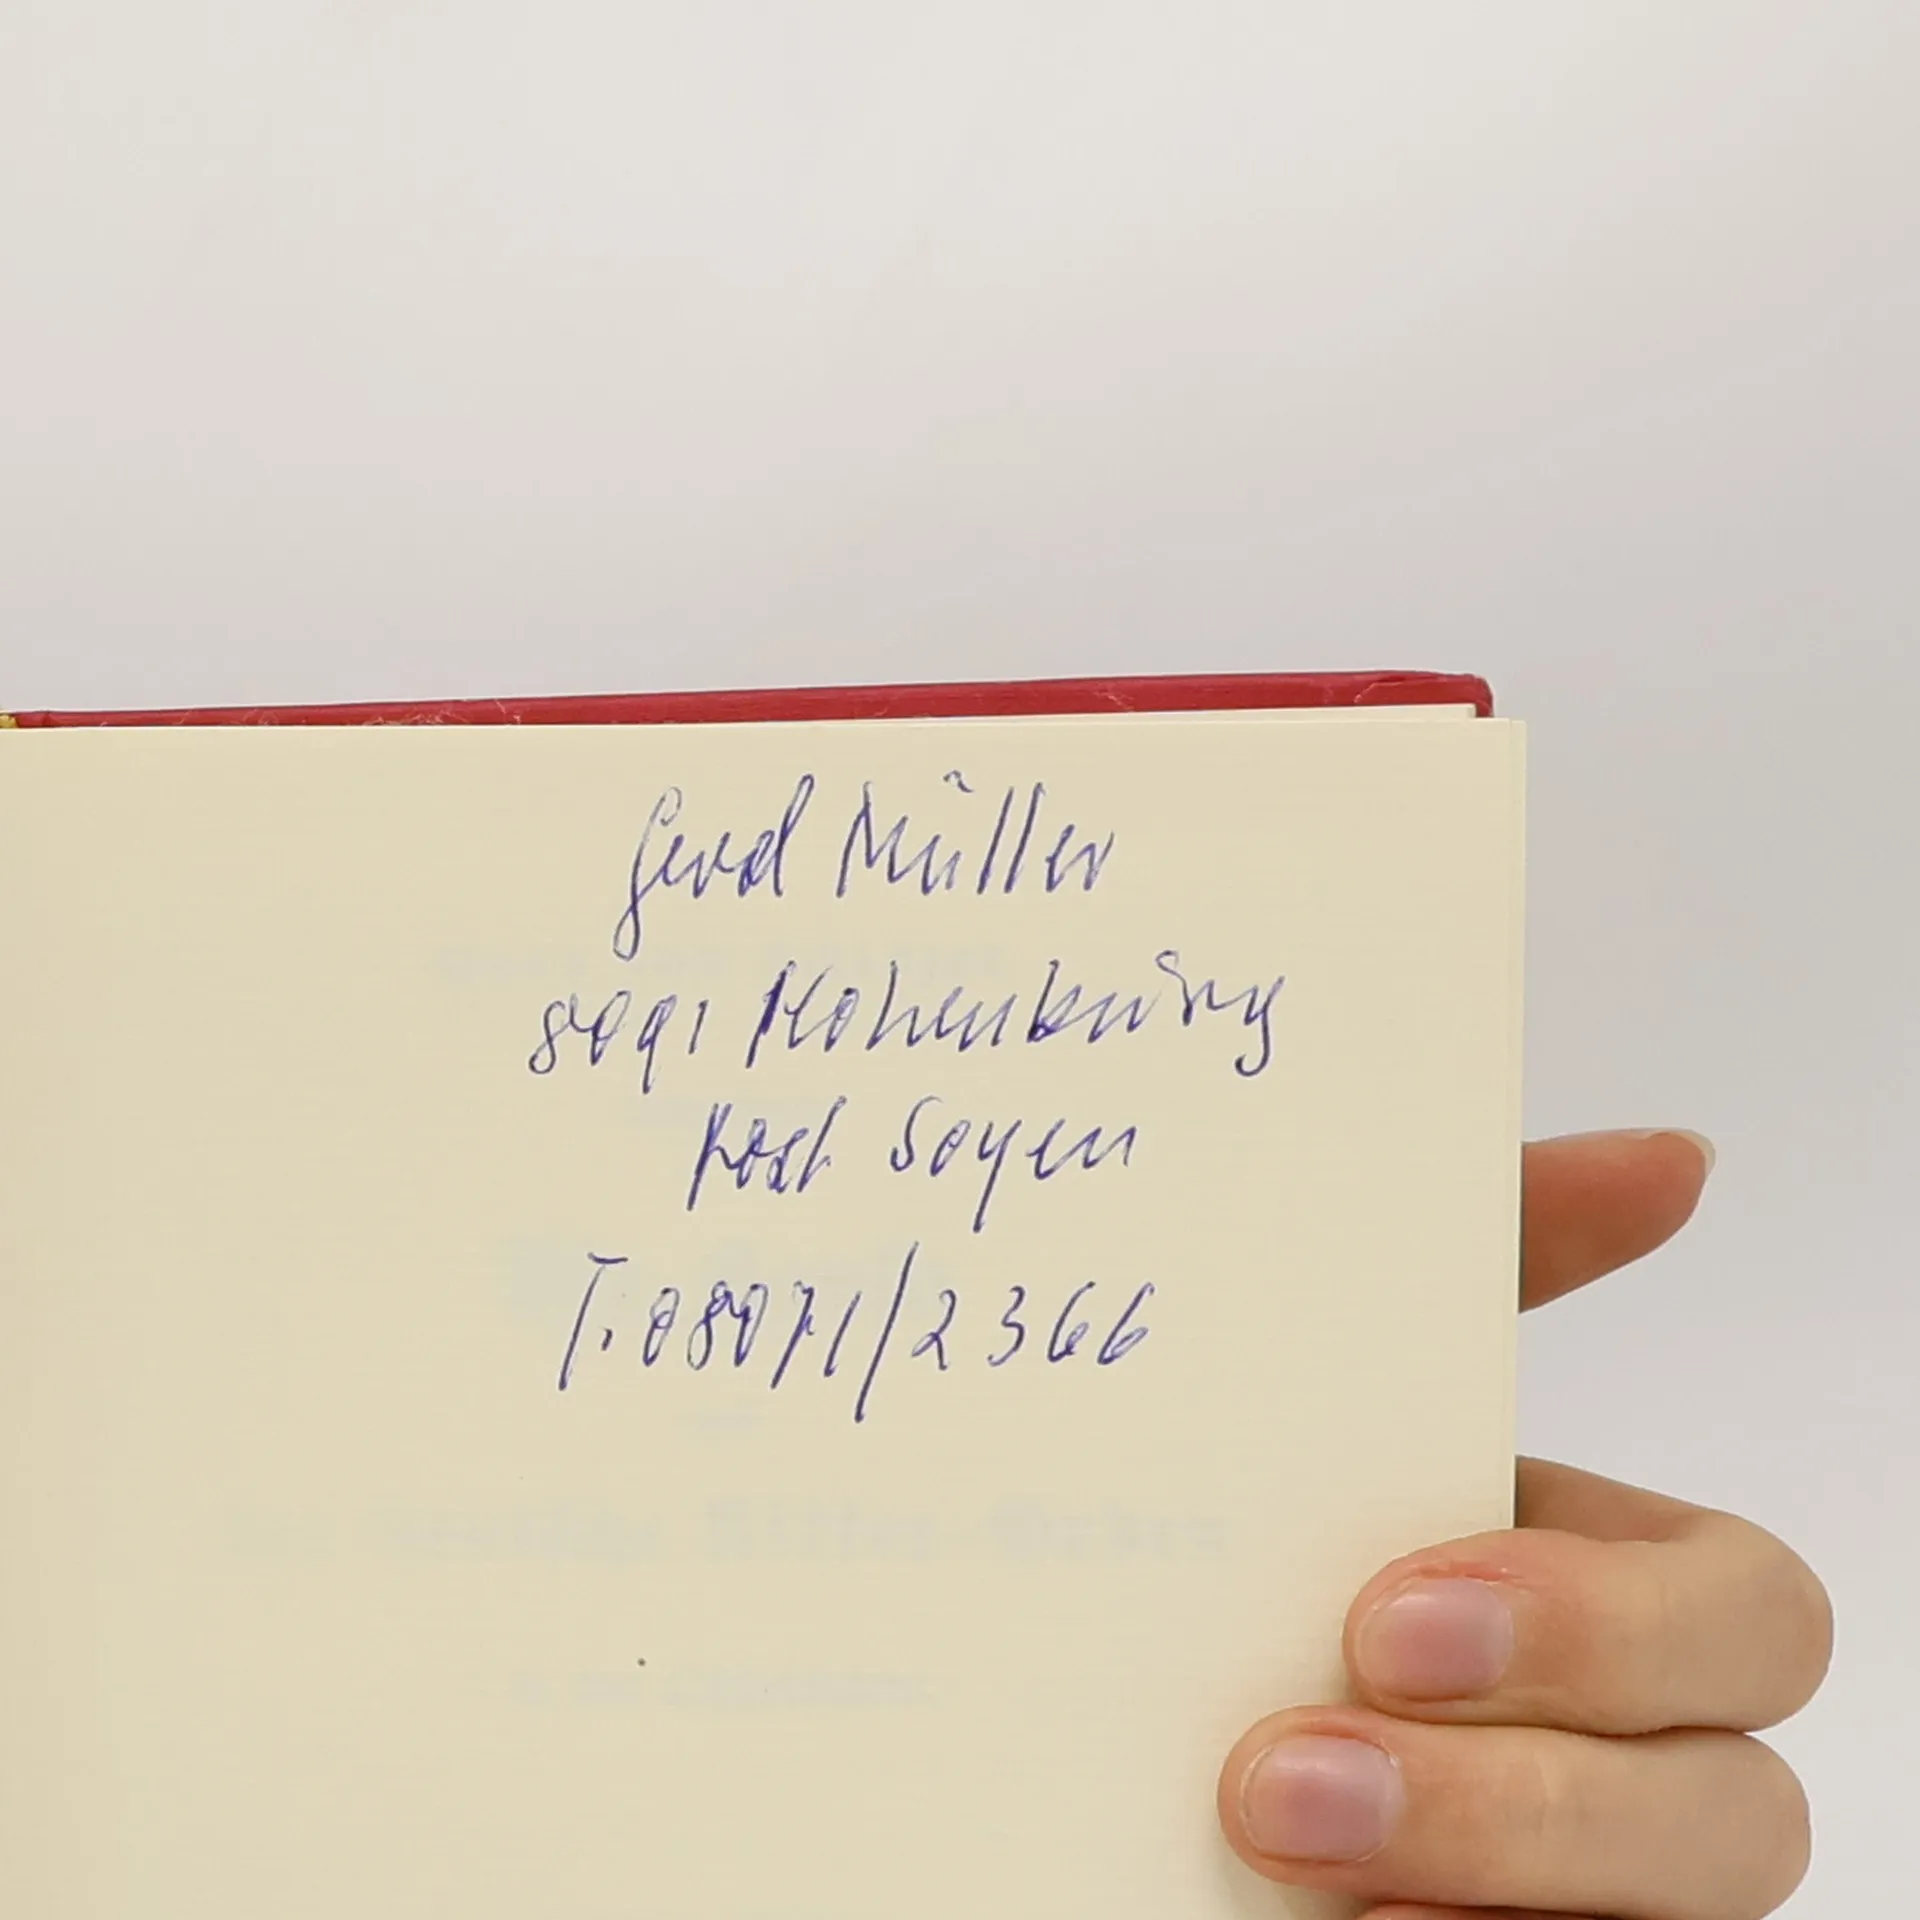 Gerd Müller
8091 Hohenburg
Post Soyen
T. 08071/2366